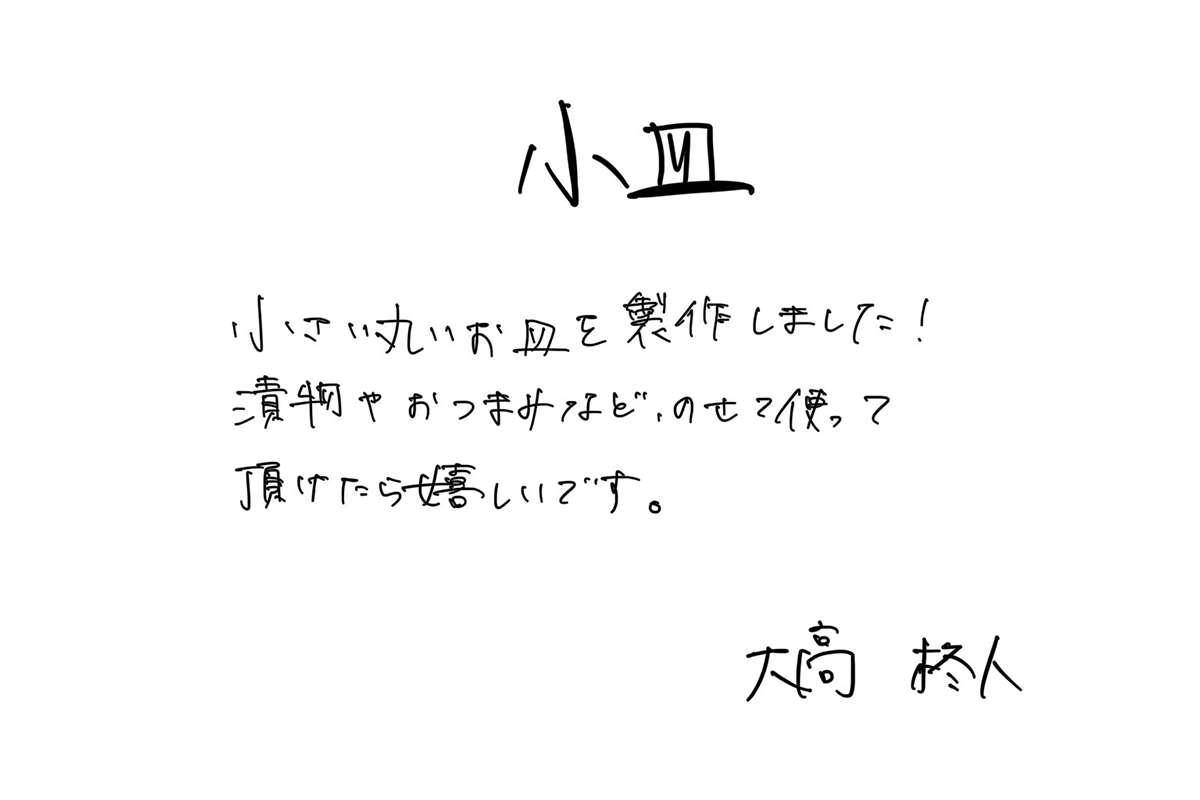 小皿
小さい丸いお皿を製作しました!
漬物やおつまみなど、のせて使って
頂けたら嬉しいです。
大高 柊人